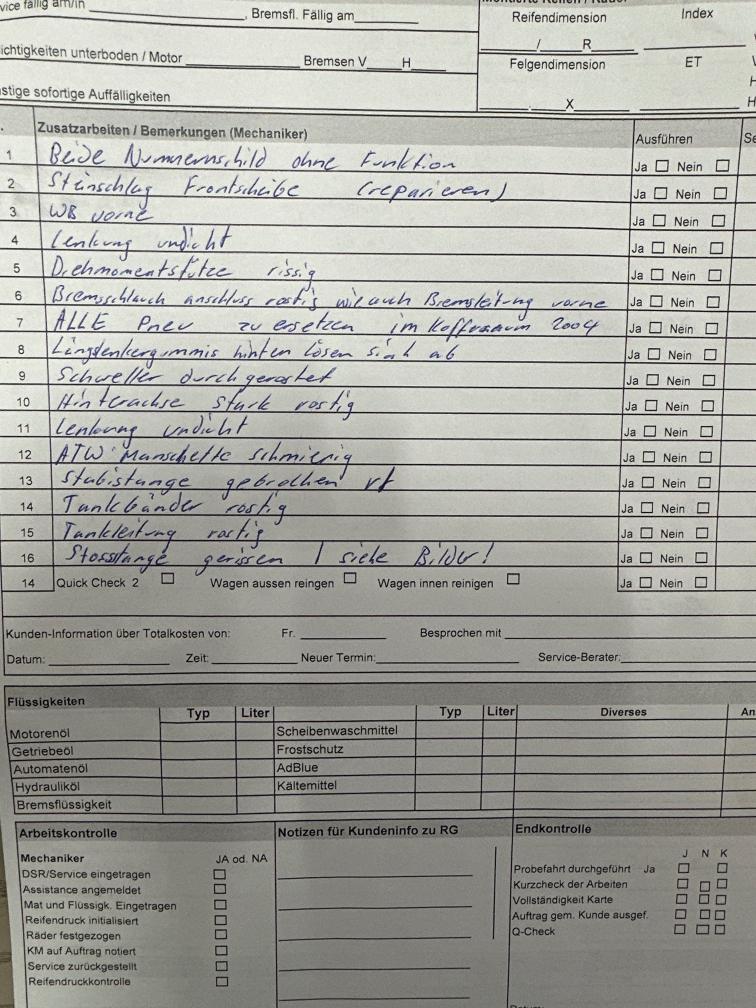 vice fällig am/in Bremsfl. Fällig am
Reifendimension Index
/ R
ichtigkeiten unterboden / Motor Bremsen V H
Felgendimension ET
X
nstige sofortige Auffälligkeiten
Zusatzarbeiten / Bemerkungen (Mechaniker) Ausführen
1 Beide Nummernschild ohne Funktion Ja Nein
2 Steinschlag Frontscheibe (reparieren) Ja Nein
3 WB vorne Ja Nein
4 Lenkung undicht Ja Nein
5 Drehmomentstütze rissig Ja Nein
6 Bremsschlauch anschluss rostig wie auch Bremsleitung vorne Ja Nein
7 ALLE Pneu zu ersetzen im Kofferraum 2004 Ja Nein
8 Längslenkergummis hinten lösen sich ab Ja Nein
9 Schweller durchgerostet Ja Nein
10 Hinterachse stark rostig Ja Nein
11 Lenkung undicht Ja Nein
12 ATW Manschette schmierig Ja Nein
13 Stabistange gebrochen Ja Nein
14 Tankbänder rostig Ja Nein
15 Tankleitung rostig Ja Nein
16 Stosstange gerissen / siehe Bilder! Ja Nein
14 Quick Check 2 Wagen aussen reingen Wagen innen reinigen Ja Nein
Kunden-Information über Totalkosten von: Fr. Besprochen mit
Datum: Zeit: Neuer Termin: Service-Berater:
Flüssigkeiten
Typ Liter Typ Liter Diverses An
Motorenöl Scheibenwaschmittel
Getriebeöl Frostschutz
Automatenöl AdBlue
Hydrauliköl Kältemittel
Bremsflüssigkeit
Arbeitskontrolle Notizen für Kundeninfo zu RG Endkontrolle
Mechaniker JA od. NA J N K
DSR/Service eingetragen Probefahrt durchgeführt Ja
Assistance angemeldet Kurzcheck der Arbeiten
Mat und Flüssigk. Eingetragen Vollständigkeit Karte
Reifendruck initialisiert Auftrag gem. Kunde ausgef.
Räder festgezogen Q-Check
KM auf Auftrag notiert
Service zurückgestellt
Reifendruckkontrolle